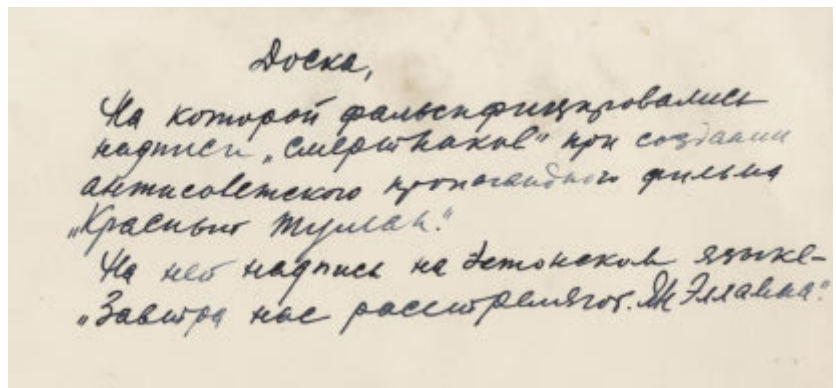 Доска,
На которой фальсифицировались
надписи „смертников“ при создании
антисоветского пропагандного фильма
„Красный туман.“
На ней надпись на Эстонском языке-
„Завтра нас расстреляют. Ян Эллавна.“